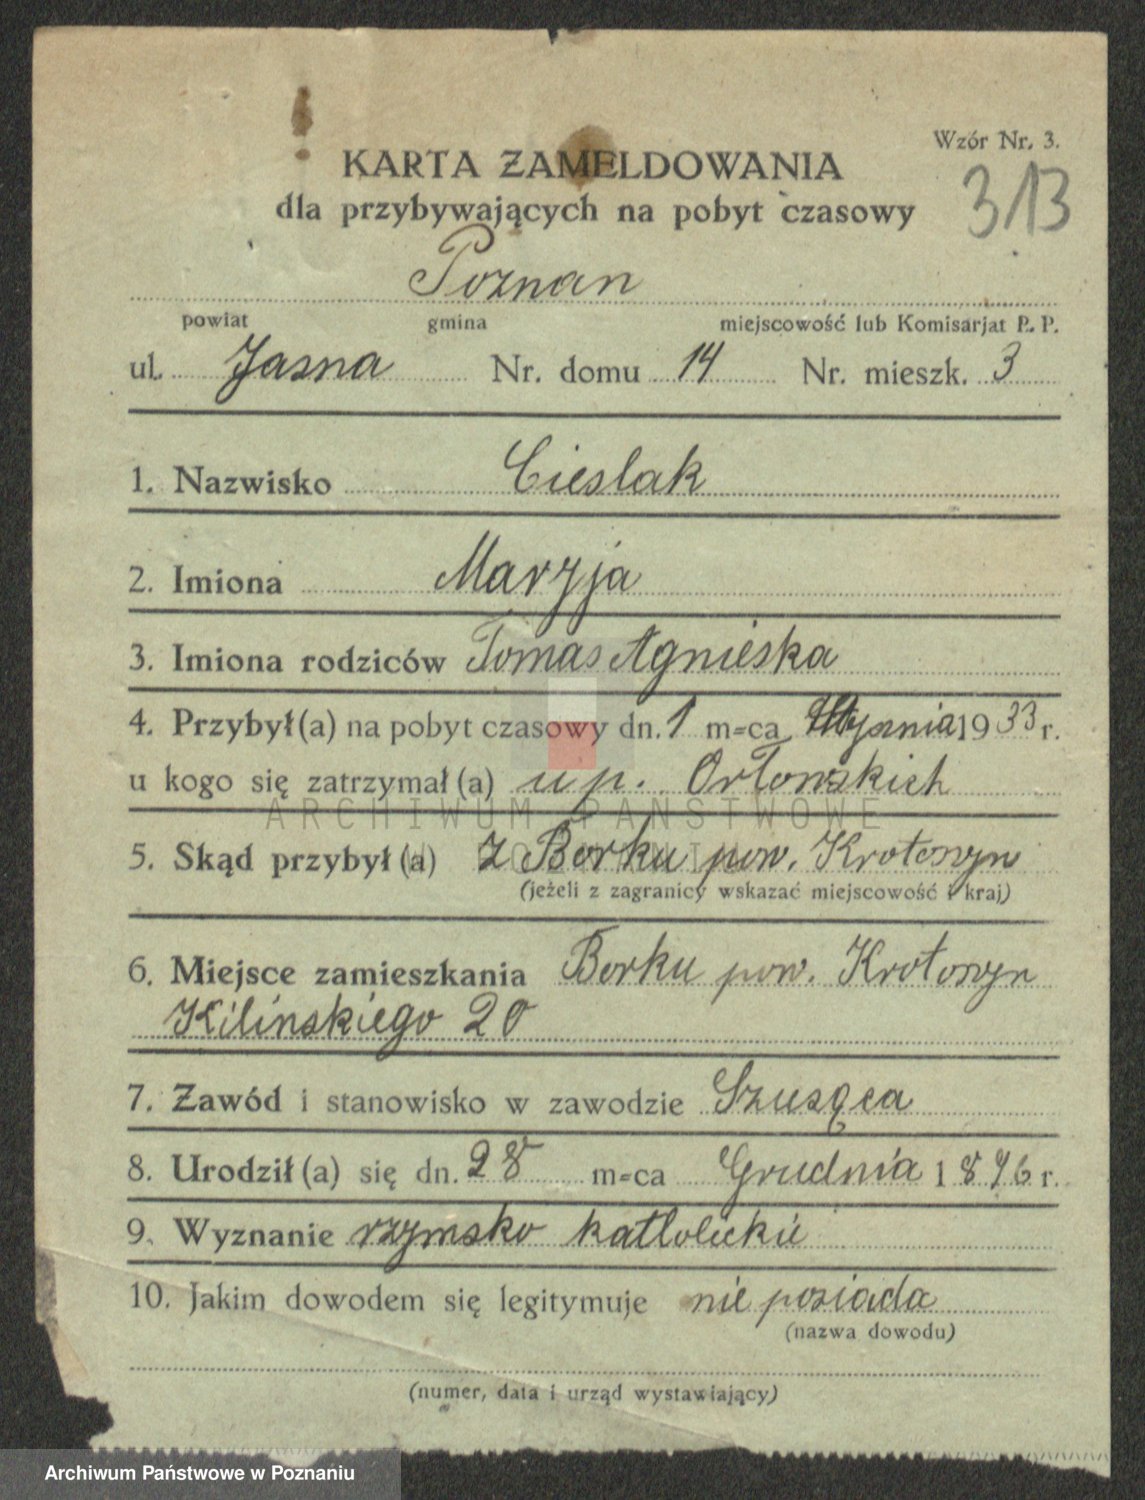 Wzór Nr. 3.
313
KARTA ZAMELDOWANIA
dla przybywających na pobyt czasowy
Poznan
powiat gmina miejscowość lub Komisarjat P. P.
ul. Jasna Nr. domu 14 Nr. mieszk. 3
1. Nazwisko Cieslak
2. Imiona Maryja
3. Imiona rodziców Tomas Agnieska
4. Przybył(a) na pobyt czasowy dn. 1 m-ca 1933 r.
u kogo się zatrzymał(a) u p. Orłowskich
ARCHIWUM PAŃSTWOWE
W POZNANIU
5. Skąd przybył(a) z Borku pow. Krotosyn
(jeżeli z zagranicy wskazać miejscowość i kraj)
6. Miejsce zamieszkania Borku pow. Krotosyn
Kilinskiego 20
7. Zawód i stanowisko w zawodzie Szusąca
8. Urodził(a) się dn. 28 m-ca Grudnia 1896 r.
9. Wyznanie rzymsko katlolickie
10. Jakim dowodem się legitymuje nie posiada
(nazwa dowodu)
(numer, data i urząd wystawiający)
Archiwum Państwowe w Poznaniu